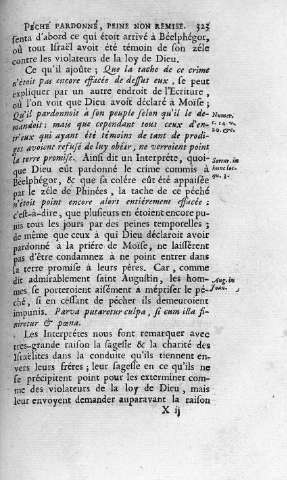 PECHÉ PARDONNÉ, PEINE NON REMISE. 325
senta d'abord ce qui étoit arrivé à Béelphégor,
où tout Israël avoit été témoin de son zéle
contre les violateurs de la loy de Dieu.
Ce qu'il ajoûte; Que la tache de ce crime
n'étoit pas encore effacée de dessus eux, se peut
expliquer par un autre endroit de l'Ecriture,
où l'on voit que Dieu avoit déclaré à Moïse;
Qu'il pardonnoit à son peuple selon qu'il le de-
mandoit; mais que cependant tous ceux d'en-
tr'eux qui ayant été témoins de tant de prodi-
ges avoient refusé de luy obéir, ne verroient point
la terre promise. Ainsi dit un Interpréte, quoi-
que Dieu eût pardonné le crime commis à
Béelphégor, & que sa colére eût été appaisée
par le zéle de Phinées, la tache de ce péché
n'étoit point encore alors entiérement effacée:
c'est-à-dire, que plusieurs en étoient encore pu-
nis tous les jours par des peines temporelles;
de même que ceux à qui Dieu déclaroit avoir
pardonné à la priére de Moïse, ne laissérent
pas d'être condamnez à ne point entrer dans
la terre promise à leurs péres. Car, comme
dit admirablement saint Augustin, les hom-
mes se porteroient aisément à mépriser le pé-
ché, si en cessant de pécher ils demeuroient
impunis. Parva putaretur culpa, si cum illa fi-
niretur & pœna.
Les Interprétes nous font remarquer avec
tres-grande raison la sagesse & la charité des
Israëlites dans la conduite qu'ils tiennent en-
vers leurs fréres; leur sagesse en ce qu'ils ne
se précipitent point pour les exterminer com-
me des violateurs de la loy de Dieu, mais
leur envoyent demander auparavant la raison
X ij
Numer.
Aug. in
Joan.